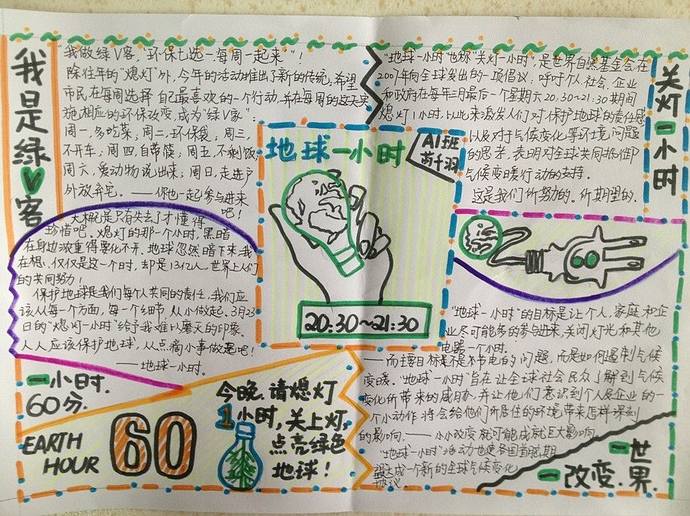 我是绿V客
"我做绿V客,环保七选一每周一起来"!
除往年的"熄灯"外,今年的活动推出了新的传统,希望
市民在每周选择自己最喜欢的一个行动,并在每周的这天实
施相应的环保改变,成为"绿V客"
周一,多吃菜,周二,环保袋,周三,
不开车,周四,自带筷,周五,不剩饭,
周六,爱动物说出来,周日,走进户
外放弃宅。——你也一起参与进来
吧!
大概是只有失去了才懂得
珍惜吧。熄灯的那一个小时,黑暗
在身边浓重得要化不开,地球忽然暗下来,我
在想,仅仅是这一个时,却是13亿人,世界上人们
的共同努力!
保护地球是我们每个人共同的责任,我们应
该从每一个方面,每一个细节,从小做起,3月23
日的"熄灯一小时"给予我难以磨灭的印象,
人人应该保护地球,从点滴小事做起吧!
——地球一小时.
一小时.
60分.
EARTH
HOUR
60
今晚,请熄灯
1小时,关上灯,
点亮绿色
地球!
地球一小时
A1班
20:30~21:30
"地球一小时"也称"关灯一小时",是世界自然基金会在
2007年向全球发出的一项倡议,呼吁个人社会、企业
和政府在每年三月最后一个星期六20:30~21:30期间
熄灯1小时,以此来激发人们对保护地球的责任感
以及对于气候变化等环境问题
的思考,表明对全球共同抵御
气候变暖行动的支持.
这是我们所努力的,所期望的.
关灯一小时
"地球一小时"的目标是让个人,家庭和企
业尽可能多的参与进来,关闭灯光和其他
电器一个小时.
——而主要目标是不节电的问题,而是如何遏制气候
变暖."地球一小时"旨在让全球社会民众了解到气候
变化所带来的威胁.并让他们意识到个人及企业的一
个小动作将会给他们所居住的环境带来怎样深刻
的影响.——小小改变就可能成就巨大影响.
"地球一小时"活动也使各国首脑期
望达成一个新的全球气候变化
协议.
一改变.一世界.